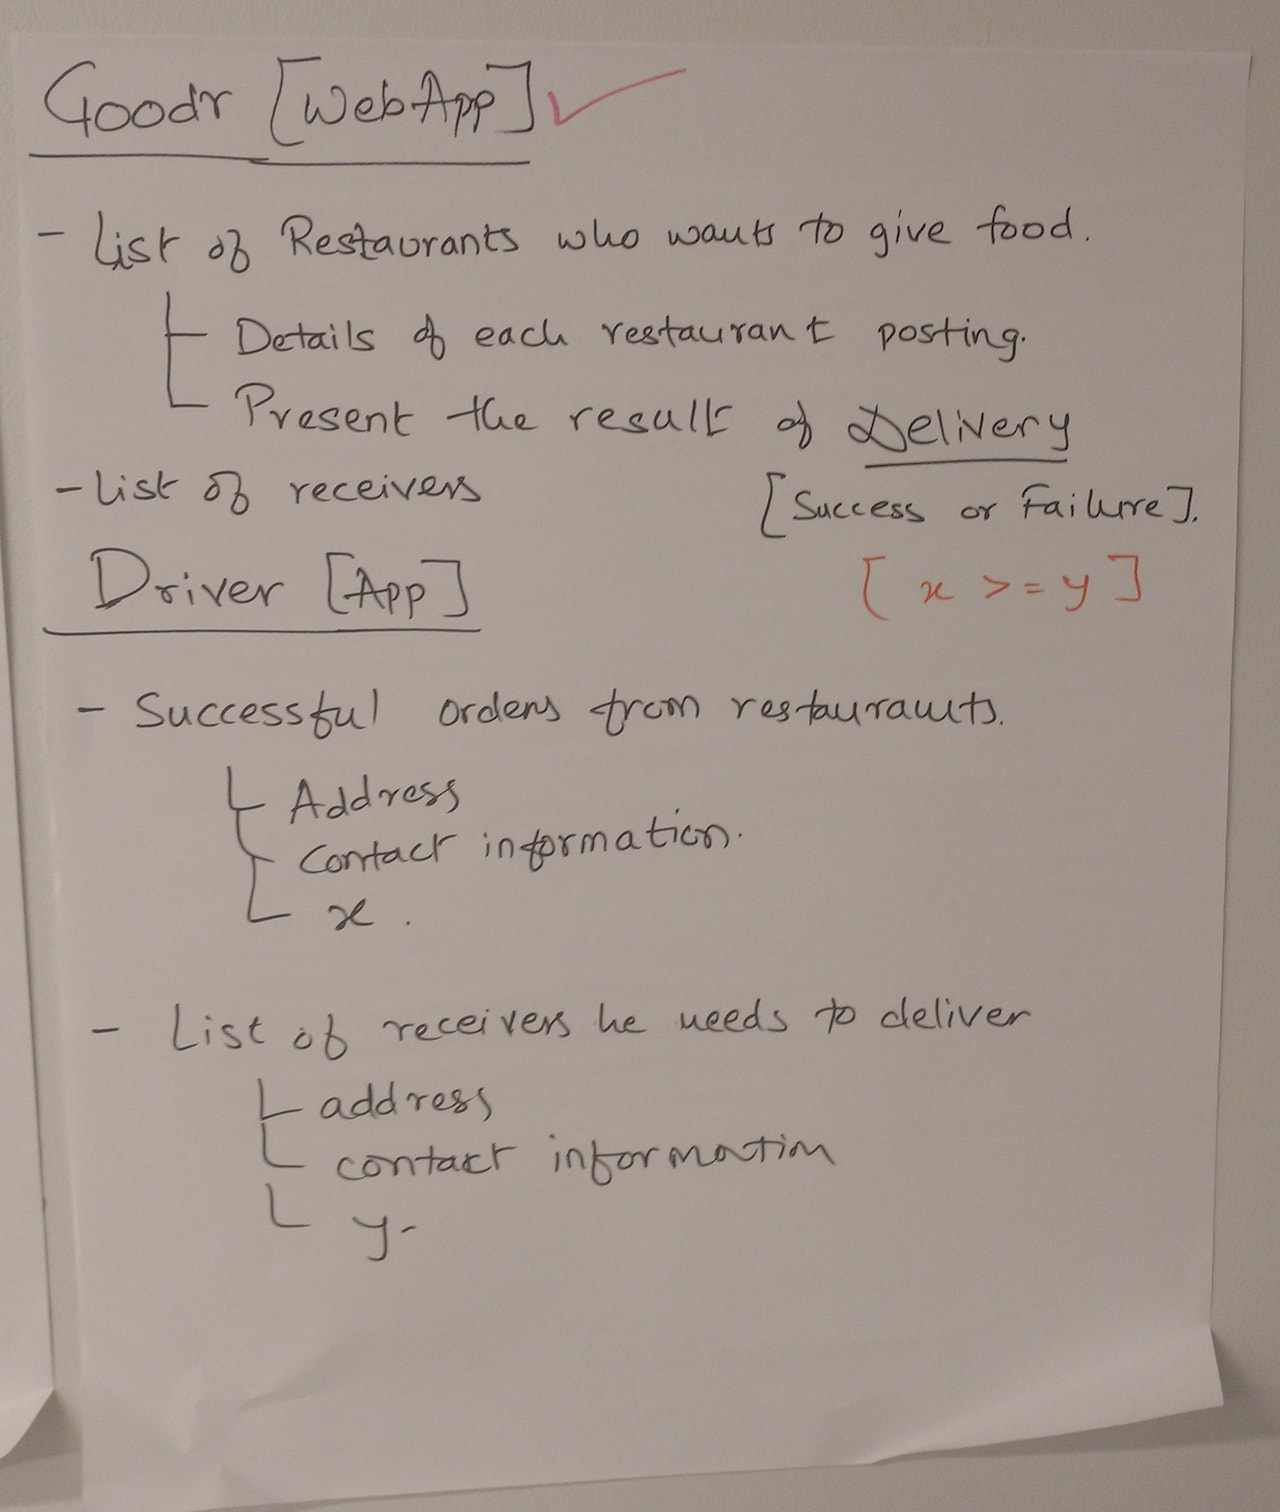 Goodr [WebApp] ✓
- List of Restaurants who wants to give food.
Details of each restaurant posting.
Present the result of Delivery
- List of receivers
[Success or Failure].
[x >= y]
Driver [App]
- Successful orders from restaurants.
Address
Contact information.
x.
- List of receivers he needs to deliver
address
contact information
y.